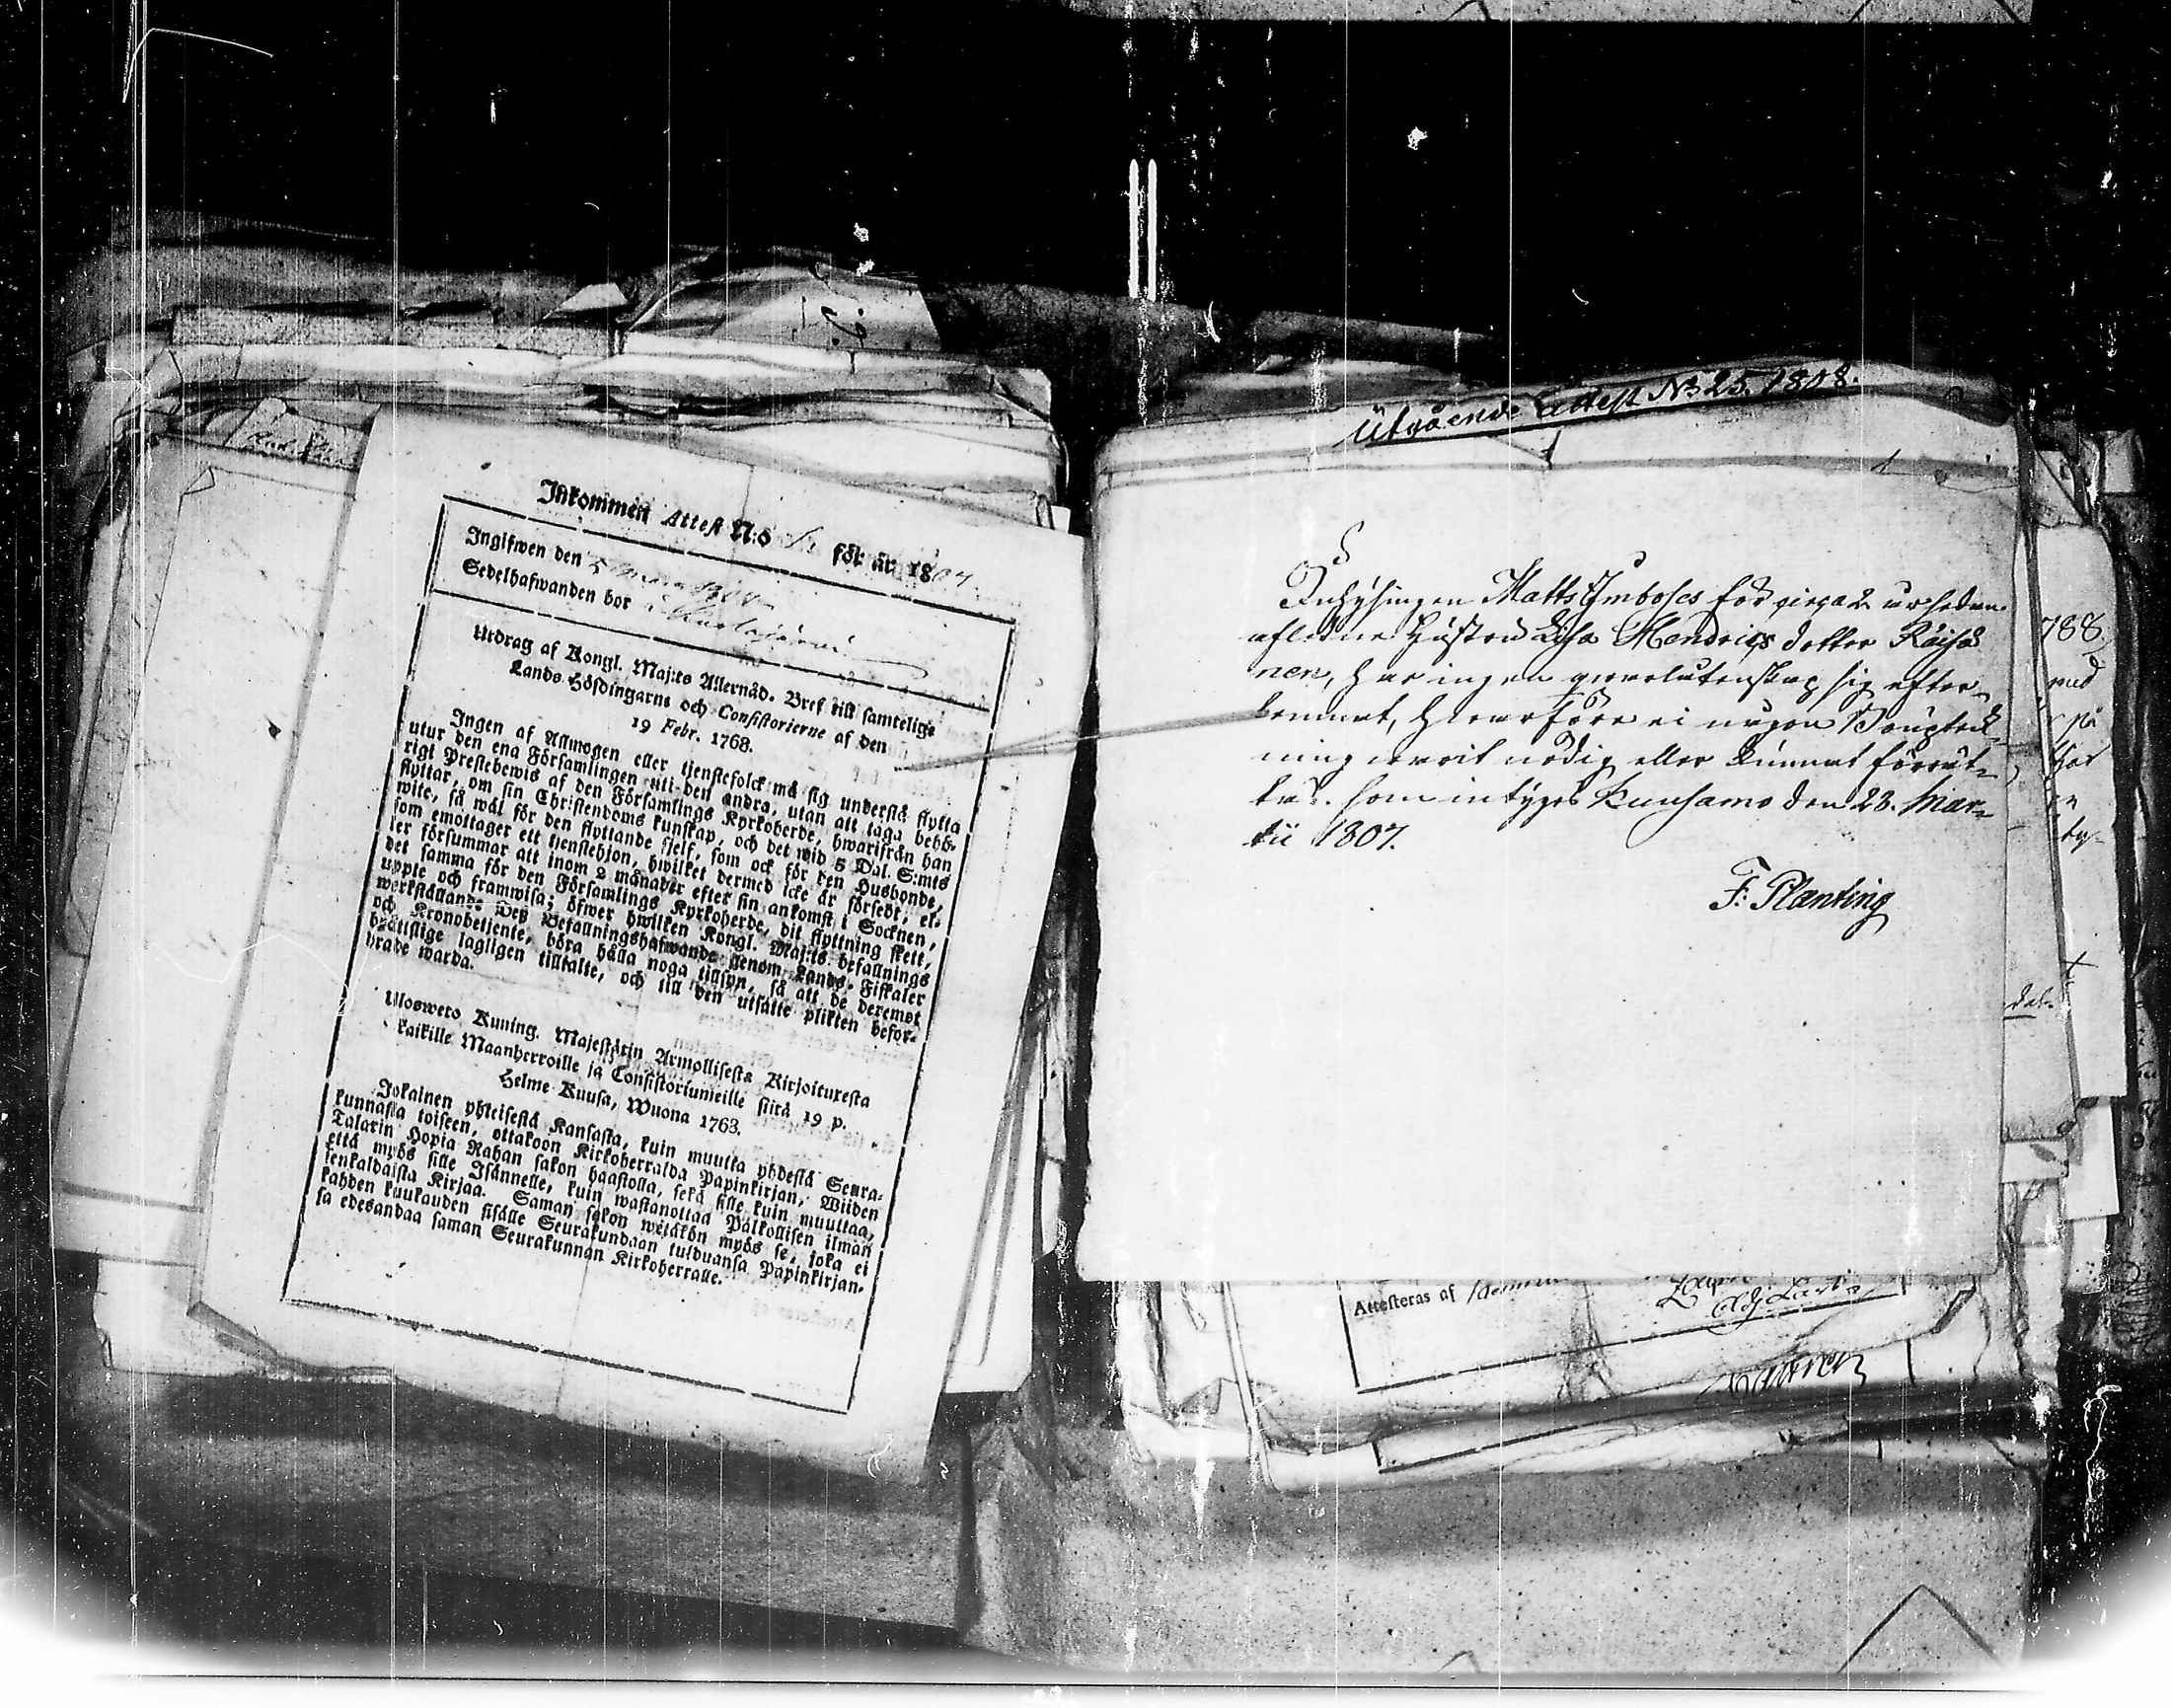 Inkommen Attest N:o för år 1807.
Ingifwen den 5 1808
Sedelhafwanden bor i
Utdrag af Kongl. Maj:ts Allernåd. Bref till samtelige
Lands-Höfdingarne och Consistorierne af den
19 Febr. 1768.
Ingen af Allmogen eller tjenstefolck må sig understå flytta
utur den ena Församlingen uti den andra, utan att taga behö-
rigt Prestebewis af den Församlings Kyrkoherde, hwarifrån han
flyttar, om sin Christendoms kunskap, och det wid 5 Dal. S:mts
wite, så wäl för den flyttande sjelf, som ock för den Husbonde,
som emottager ett tjenstehjon, hwilket dermed icke är försedt, el-
ler försummar att inom 2 månader efter sin ankomst i Socknen,
det samma för den Församlings Kyrkoherde, dit flyttning skett,
uppte och framwisa; öfwer hwilken Kongl. Maj:ts befallnings
werkställande Deß Befallningshafwande genom Lands-Fiskaler
och Kronobetjente, böra hålla noga tillsyn, så att de deremot
brottslige lagligen tilltalte, och till den utsatte plikten befor-
drade warda.
Uloswero Kuning. Majestätin Armollisesta Kirjoituxesta
kaikille Maanherroille ja Consistoriumeille siitä 19 p.
Helme-Kuusa, Wuona 1763.
Jokainen yhteisestä Kansasta, kuin muutta yhdestä Seura-
kunnasta toiseen, ottakoon Kirkoherralda Papinkirjan, Wiiden
Talarin Hopia Rahan sakon haastolla, sekä sille kuin muuttaa,
että myös sille Isännelle, kuin wastanottaa Palkollisen ilman
senkaldaista Kirjaa. Saman sakon wetäkön myös se, joka ei
kahden kuukauden sisälle Seurakundaan tulduansa Papinkirjan-
sa edesandaa saman Seurakunnan Kirkoherralle.
Utgående Attest No 25. 1808.
Inhysingen Matts Imboses för circa 2 år sedan
aflidne Hustru Lisa Hendrics dotter Räisä
nen, har ingen qvarlåtenskap sig efter-
lemnat, hvarföre ei någon Bouptek-
ning varit nödig eller kunnat förrät-
tas. som intyges Kuusamo den 28. Mar-
tii 1807.
F: Planting
788.
med
på
Attesteras af